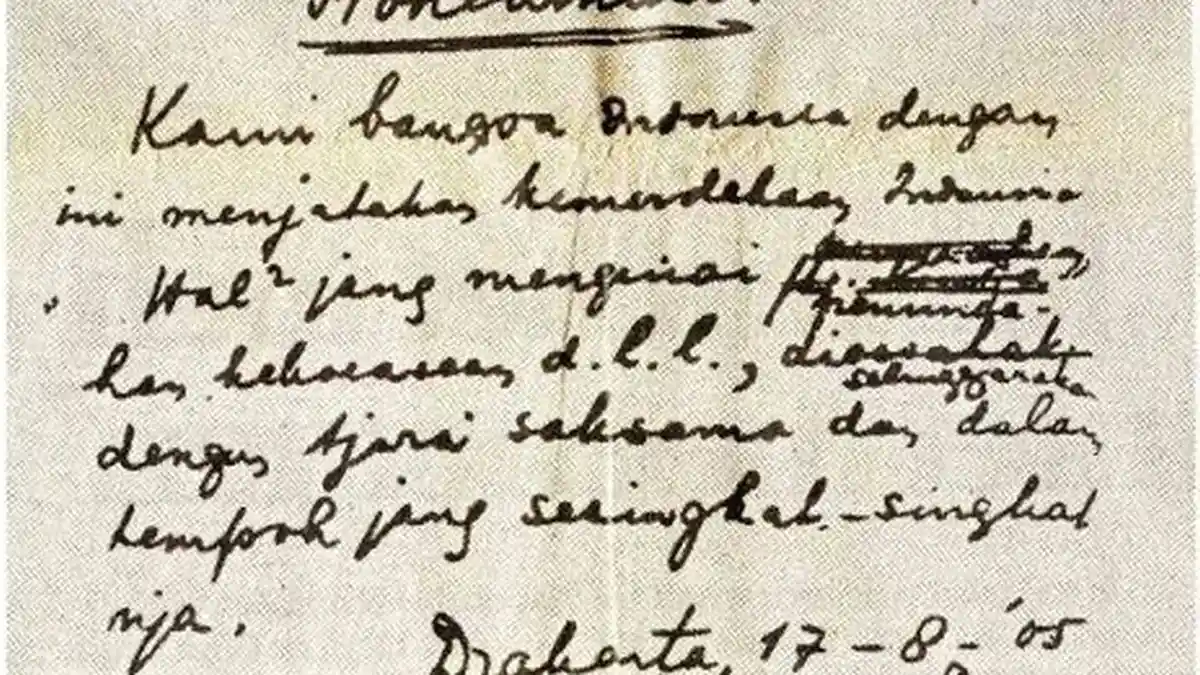 Proklamasi.
Kami bangsa Indonesia dengan
ini menjatakan kemerdekaan Indonesia
. Hal² jang mengenai
peminda-
han kekoeasaan d.l.l., dioesahak
selenggarakan
dengan tjara saksama dan dalam
tempoh jang sesingkat-singkat
nja.
Djakarta, 17-8-'05